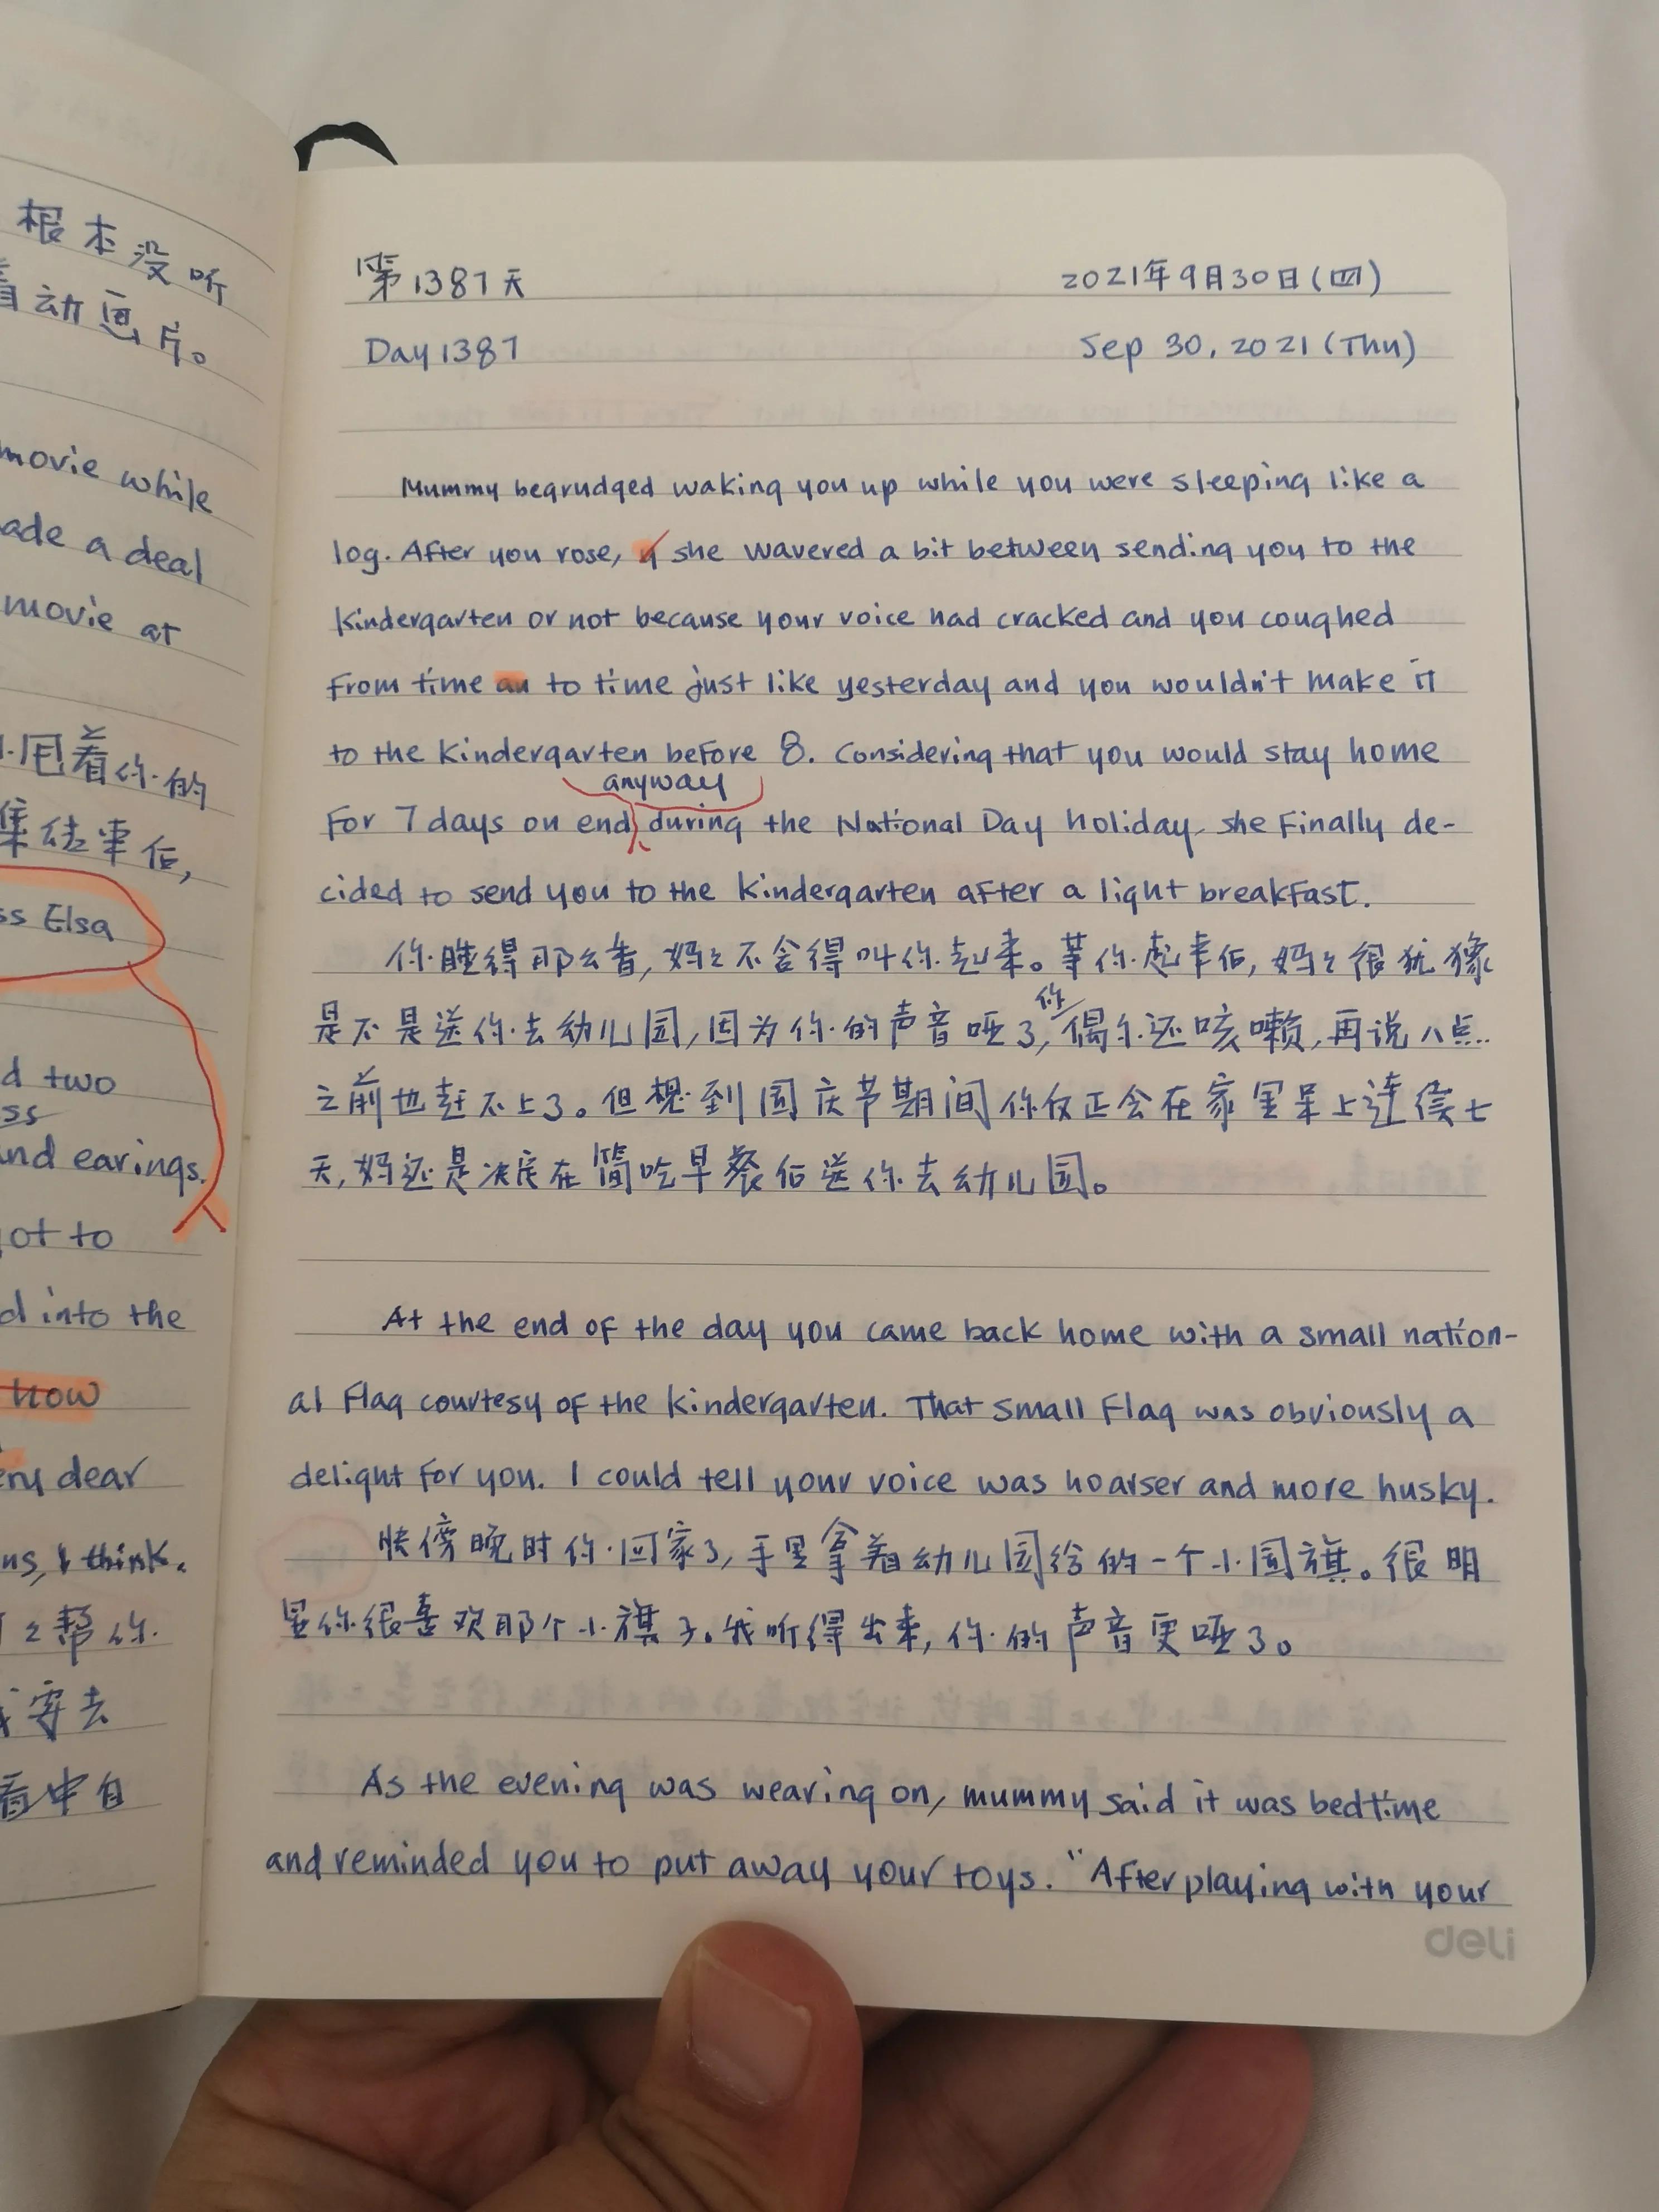 根本没听
着动画片。
movie while
ade a deal
movie at
甩着你的
集结束后,
ss Elsa
d two
ss
and earings.
got to
d into the
how
ery dear
ns, I think.
帮你
看中自
第1387天 2021年9月30日(四)
Day 1387 Sep 30, 2021 (Thu)
Mummy begrudged waking you up while you were sleeping like a
log. After you rose, y she wavered a bit between sending you to the
kindergarten or not because your voice had cracked and you coughed
from time an to time just like yesterday and you wouldn't make it
to the kindergarten before 8. Considering that you would stay home
anyway
for 7 days on end during the National Day holiday, she finally de-
cided to send you to the kindergarten after a light breakfast.
你睡得那么香,妈々不舍得叫你起来。等你起来后,妈々很犹豫
你
是不是送你去幼儿园,因为你的声音哑了,偶尔还咳嗽,再说八点
之前也赶不上了。但想到国庆节期间你反正会在家里呆上连续七
天,妈还是决定在简吃早餐后送你去幼儿园。
At the end of the day you came back home with a small nation-
al flag courtesy of the kindergarten. That small flag was obviously a
delight for you. I could tell your voice was hoarser and more husky.
快傍晚时你回家了,手里拿着幼儿园给的一个小国旗。很明
显你很喜欢那个小旗子。我听得出来,你的声音更哑了。
As the evening was wearing on, mummy said it was bedtime
and reminded you to put away your toys. "After playing with your
deli